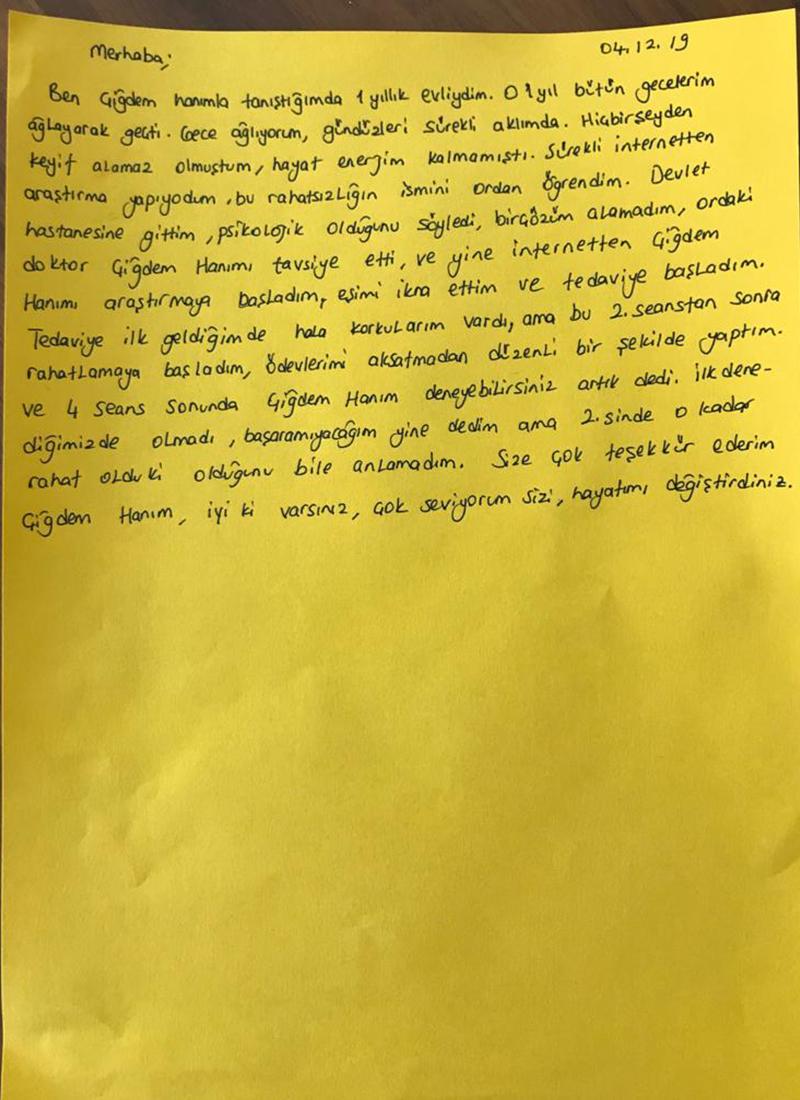 04.12.19
Merhaba;
Ben Çiğdem hanımla tanıştığımda 1 yıllık evliydim. O 1 yıl bütün gecelerim
ağlayarak geçti. Gece ağlıyorum, gündüzleri sürekli aklımda. Hiçbirşeyden
keyif alamaz olmuştum, hayat enerjim kalmamıştı. Sürekli internetten
araştırma yapıyodum, bu rahatsızlığın ismini ordan öğrendim. Devlet
hastanesine gittim, psikolojik olduğunu söyledi, birçözüm alamadım, ordaki
doktor Çiğdem Hanımı tavsiye etti, ve yine internetten Çiğdem
Hanımı araştırmaya başladım, eşimi ikna ettim ve tedaviye başladım.
Tedaviye ilk geldiğimde hala korkularım vardı, ama bu 2. seanstan sonra
rahatlamaya başladım, ödevlerimi aksatmadan düzenli bir şekilde yaptım.
ve 4 seans sonunda Çiğdem Hanım deneyebilirsiniz artık dedi. İlk dene-
diğimizde olmadı, başaramıyacağım yine dedim ama 2.sinde o kadar
rahat oldu ki olduğunu bile anlamadım. Size çok teşekkür ederim
Çiğdem Hanım, iyi ki varsınız, çok seviyorum sizi, hayatımı değiştirdiniz.